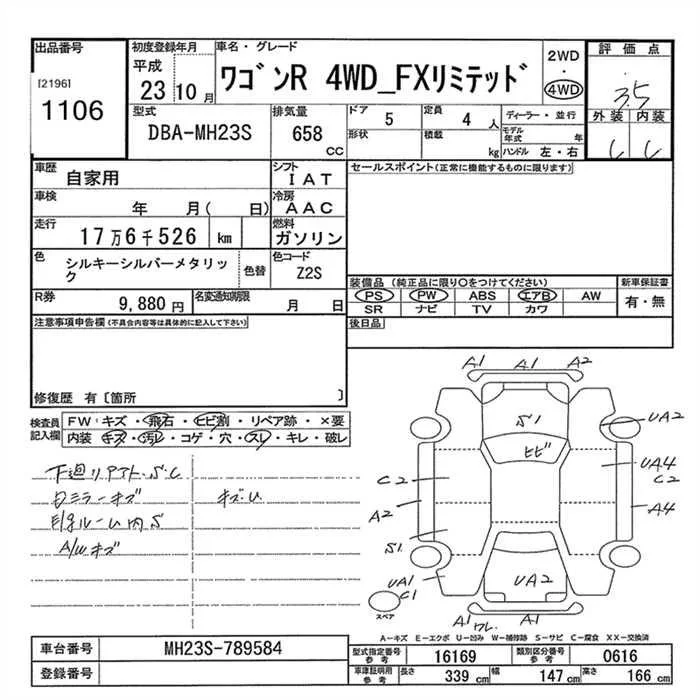 出品番号
[2196]
1106
初度登録年月
平成
23 10 月
車名・グレード
ワゴンR 4WD_FXリミテッド
2WD
・
4WD
評価点
3.5
外装 内装
型式
DBA-MH23S
排気量
658
CC
ドア
5
定員
4 人
形状
積載
kg
ディーラー・並行
モデル
年式 年
ハンドル 左・右
車歴
自家用
シフト
IAT
車検
年 月( 日)
冷房
AAC
走行
17万6千526 km
燃料
ガソリン
色
シルキーシルバーメタリッ
ク
色替
色コード
Z2S
R券
9,880 円
名変通知期限
月 日
セールスポイント(正常に機能するものに限ります)
装備品(純正品に限り○をつけてください)
PS PW ABS エアB AW
SR ナビ TV カワ
新車保証書
有・無
後日品
注意事項申告欄(不具合内容等は具体的に記入して下さい)
修復歴 有〔箇所 〕
検査員
記入欄
FW:キズ・飛石・ヒビ割・リペア跡・×要
内装・キズ・汚レ・コゲ・穴・スレ・キレ・破レ
下廻リ S.C
ミラーキズ キズ.U
ルーム内S
A/Wキズ
A1 A1 A2
S1
ヒビ
UA2
C2
UA4
C2
A2
A4
S1
UA1
C1
UA2
スペア
A1 ワレ. A1
A－キズ E－エクボ U－凹み W－補修跡 S－サビ C－腐食 XX－交換済
車台番号
MH23S-789584
登録番号
型式指定番号
参考
16169
類別区分番号
参考
0616
車庫証明用
参考
長さ
339 cm
幅
147 cm
高さ
166 cm